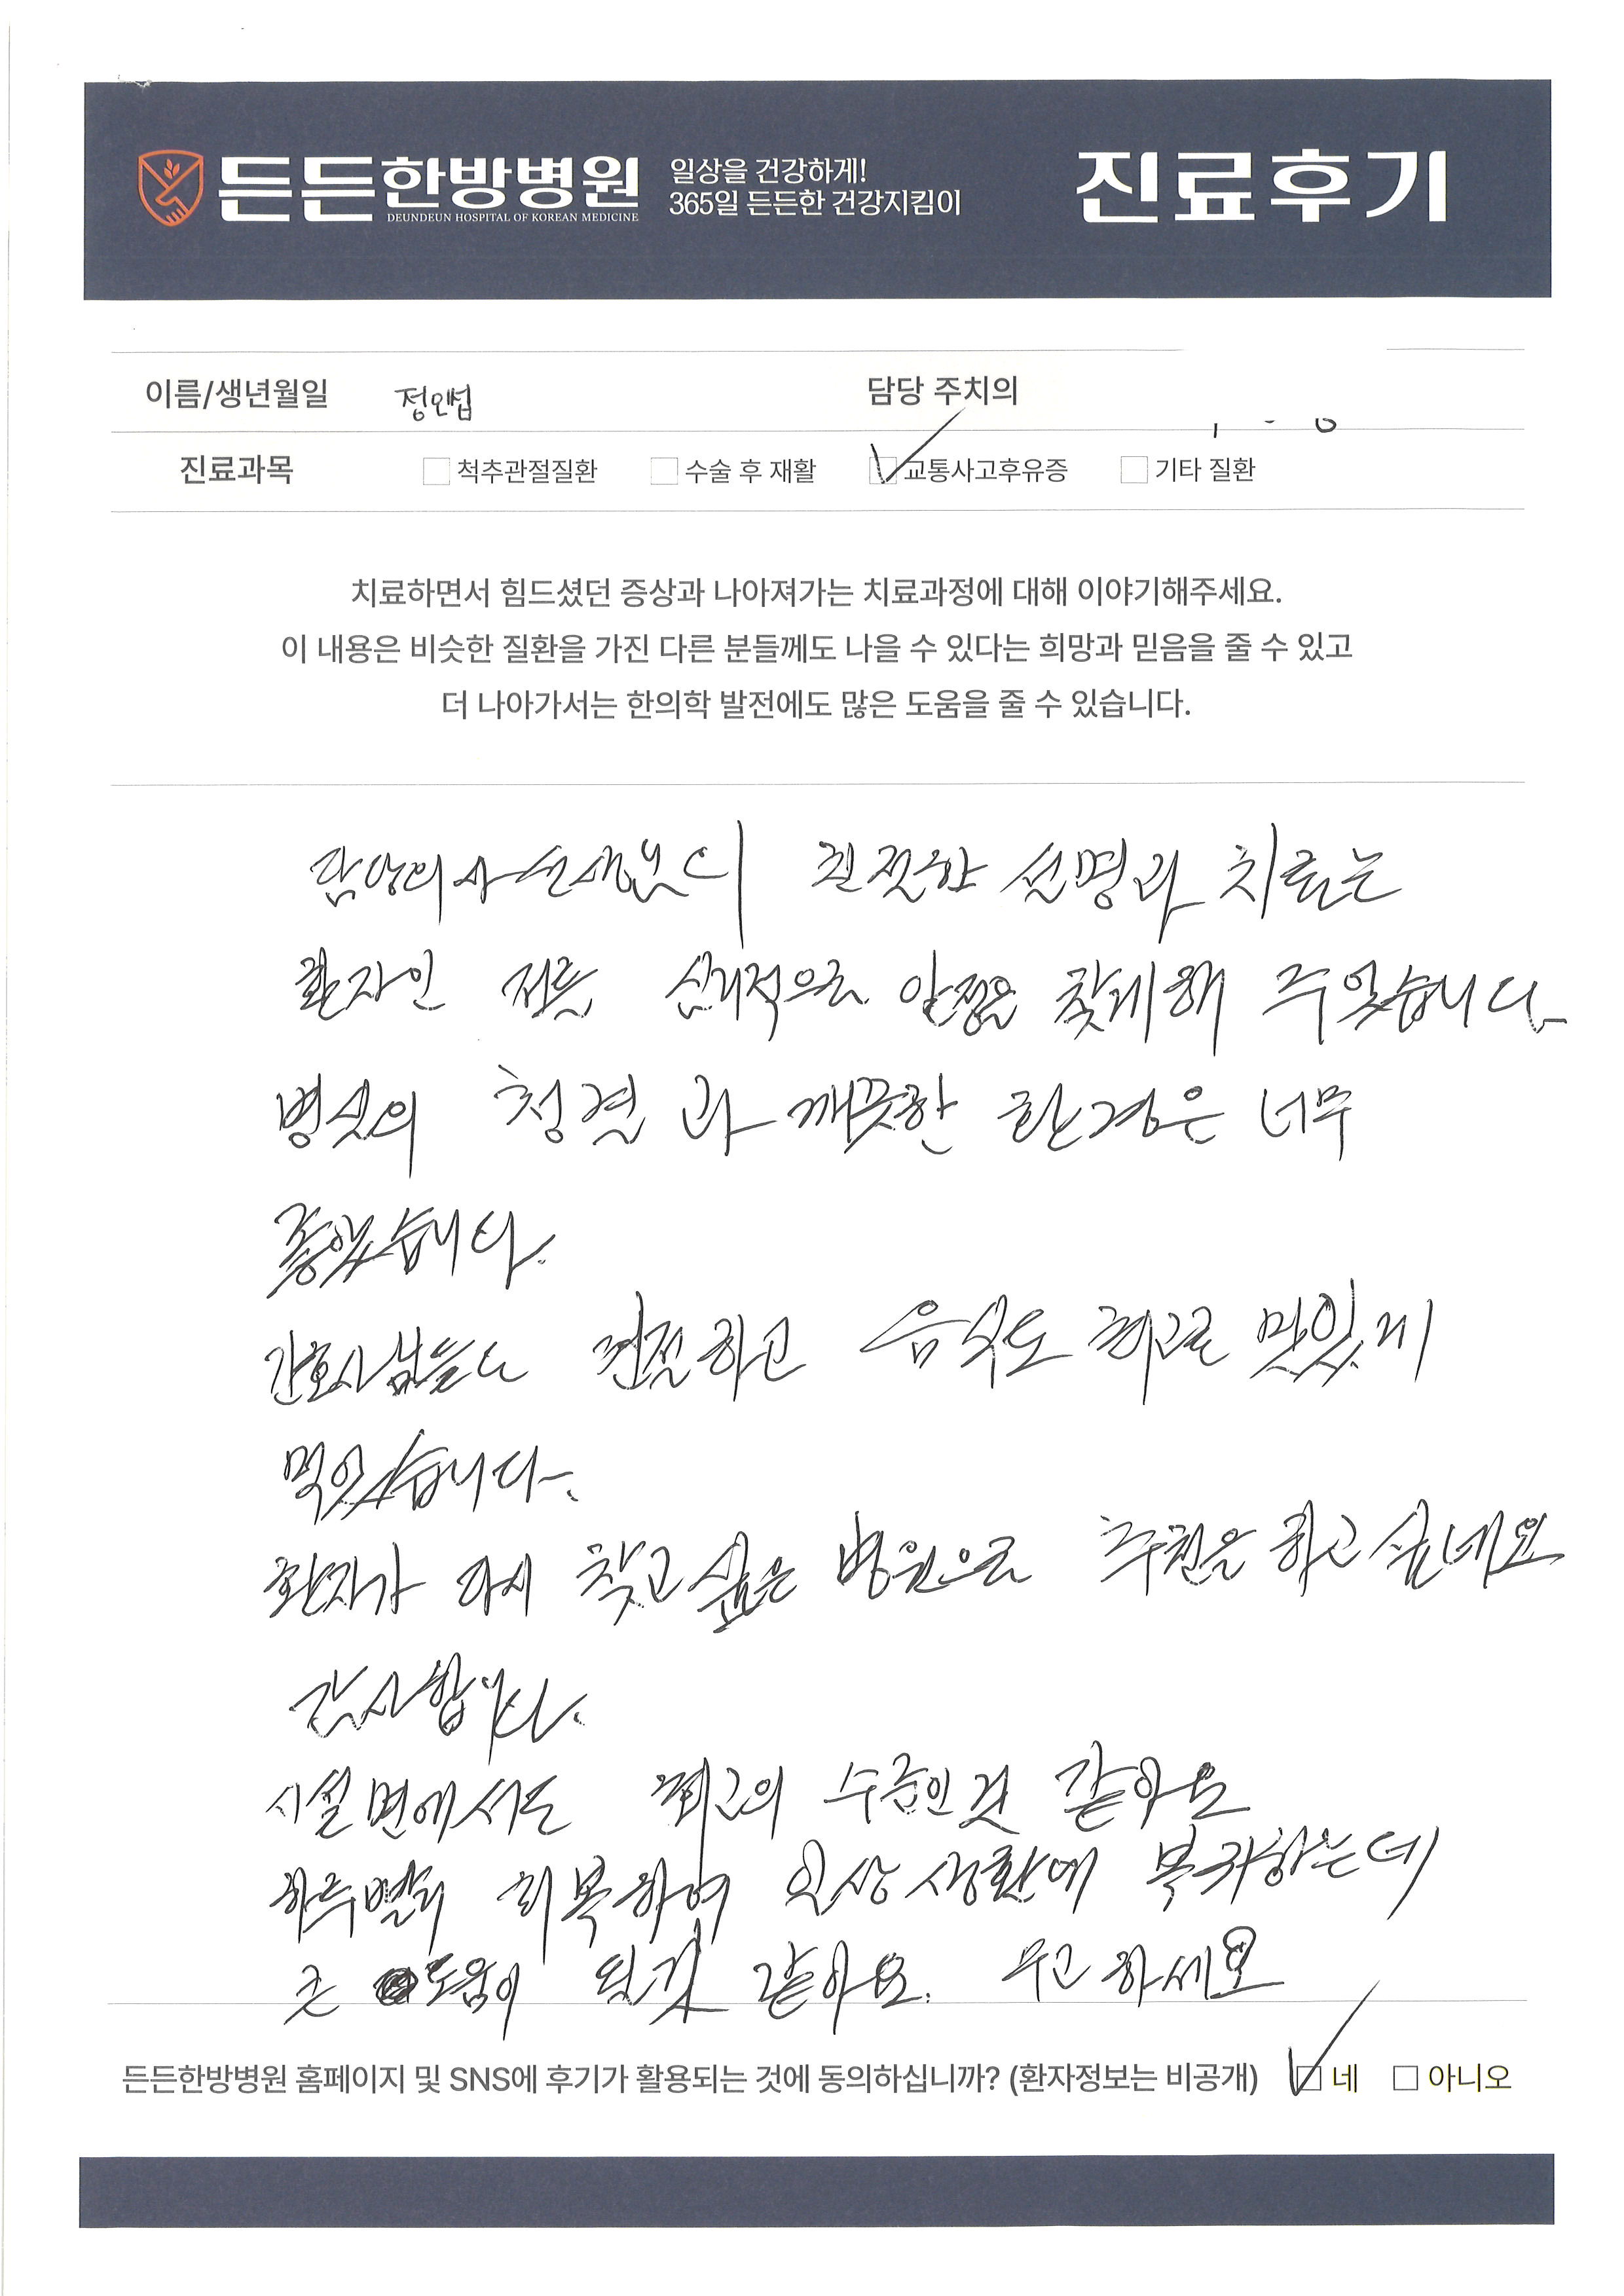 든든한방병원
DEUNDEUN HOSPITAL OF KOREAN MEDICINE
일상을 건강하게!
365일 든든한 건강지킴이
진료후기
이름/생년월일 담당 주치의
진료과목 척추관절질환 수술 후 재활 교통사고후유증 기타 질환
치료하면서 힘드셨던 증상과 나아져가는 치료과정에 대해 이야기해주세요.
이 내용은 비슷한 질환을 가진 다른 분들께도 나을 수 있다는 희망과 믿음을 줄 수 있고
더 나아가서는 한의학 발전에도 많은 도움을 줄 수 있습니다.
담당의사 선생님의 친절한 설명과 치료는
환자인 저를 심리적으로 안정을 찾게해 주었습니다
병실의 청결과 깨끗한 환경은 너무
좋았습니다.
간호사님들도 친절하고 음식도 최고로 맛있게
먹었습니다.
환자가 다시 찾고 싶은 병원으로 추천을 하고 싶네요
감사합니다.
시설 면에서도 최고의 수준인것 같아요
하루빨리 회복하여 일상생활에 복귀하는데
큰 도움이 될것 같아요. 수고하세요
든든한방병원 홈페이지 및 SNS에 후기가 활용되는 것에 동의하십니까? (환자정보는 비공개) 네 아니오